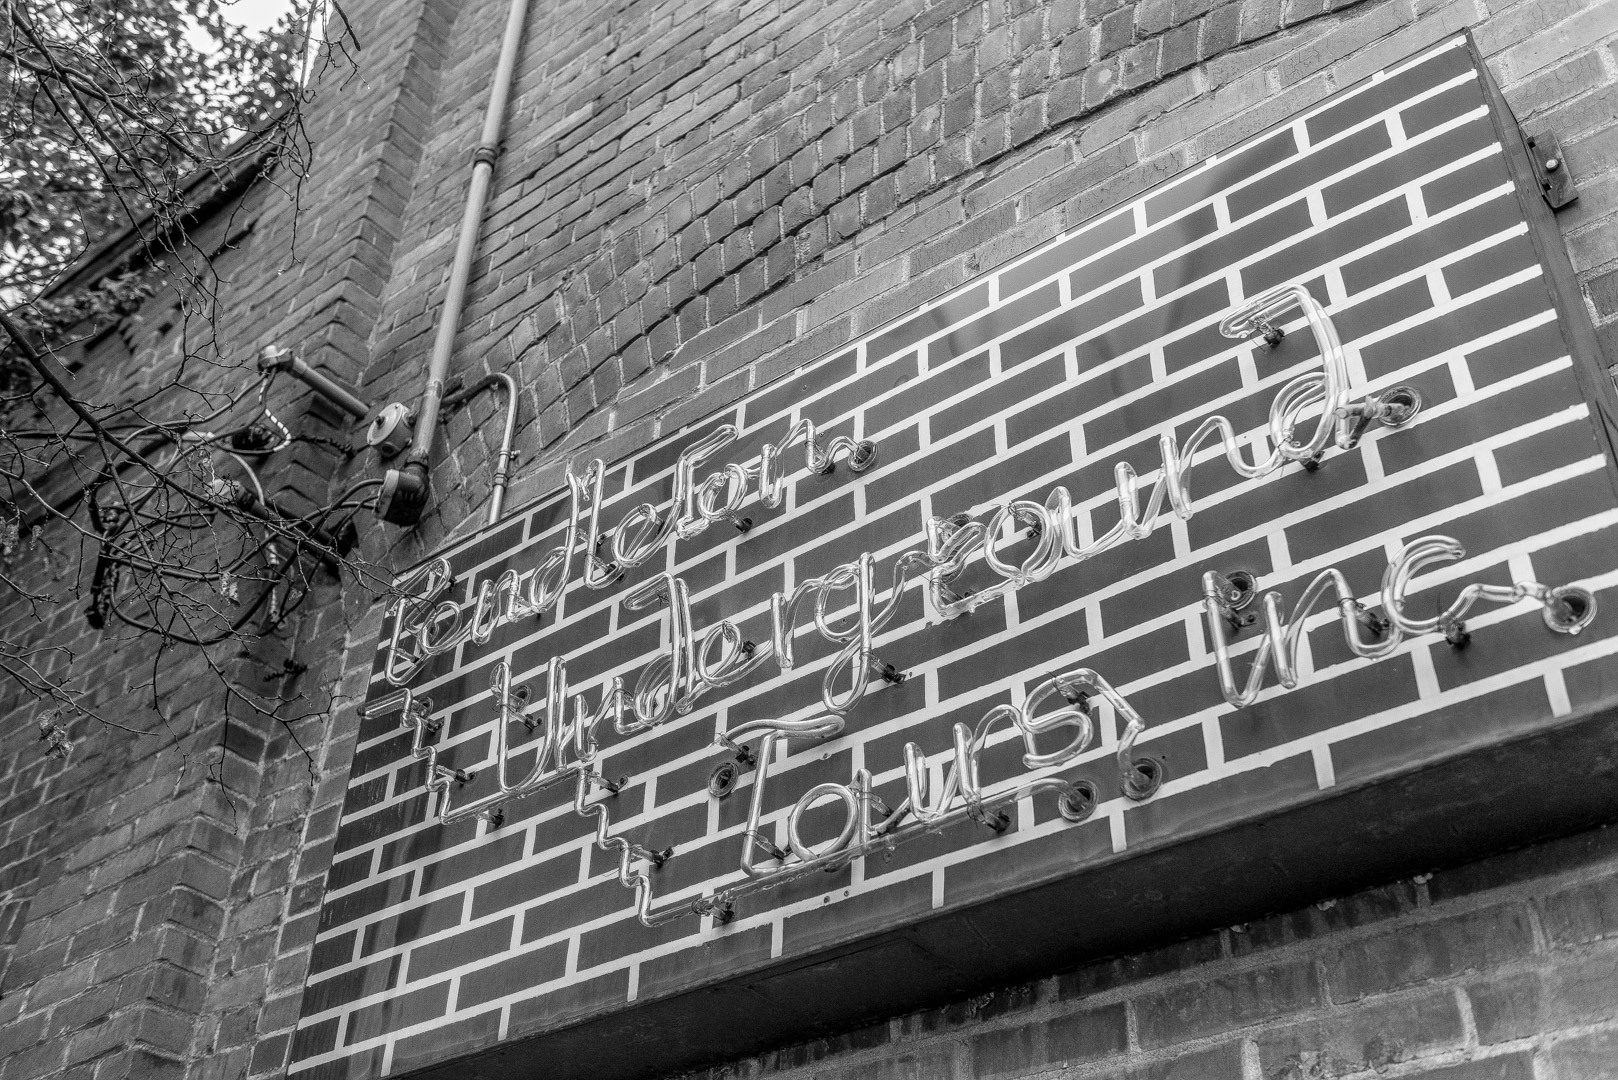 Pendleton
Underground
Tours inc.